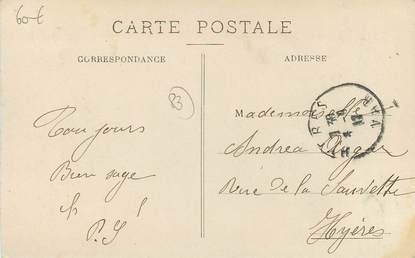 60-6
CARTE POSTALE
CORRESPONDANCE
ADRESSE
83
Toujours
Bien sage
P.S!
Mademoiselle
Andrea
Rue de la
Hyères
HYERES
VAR